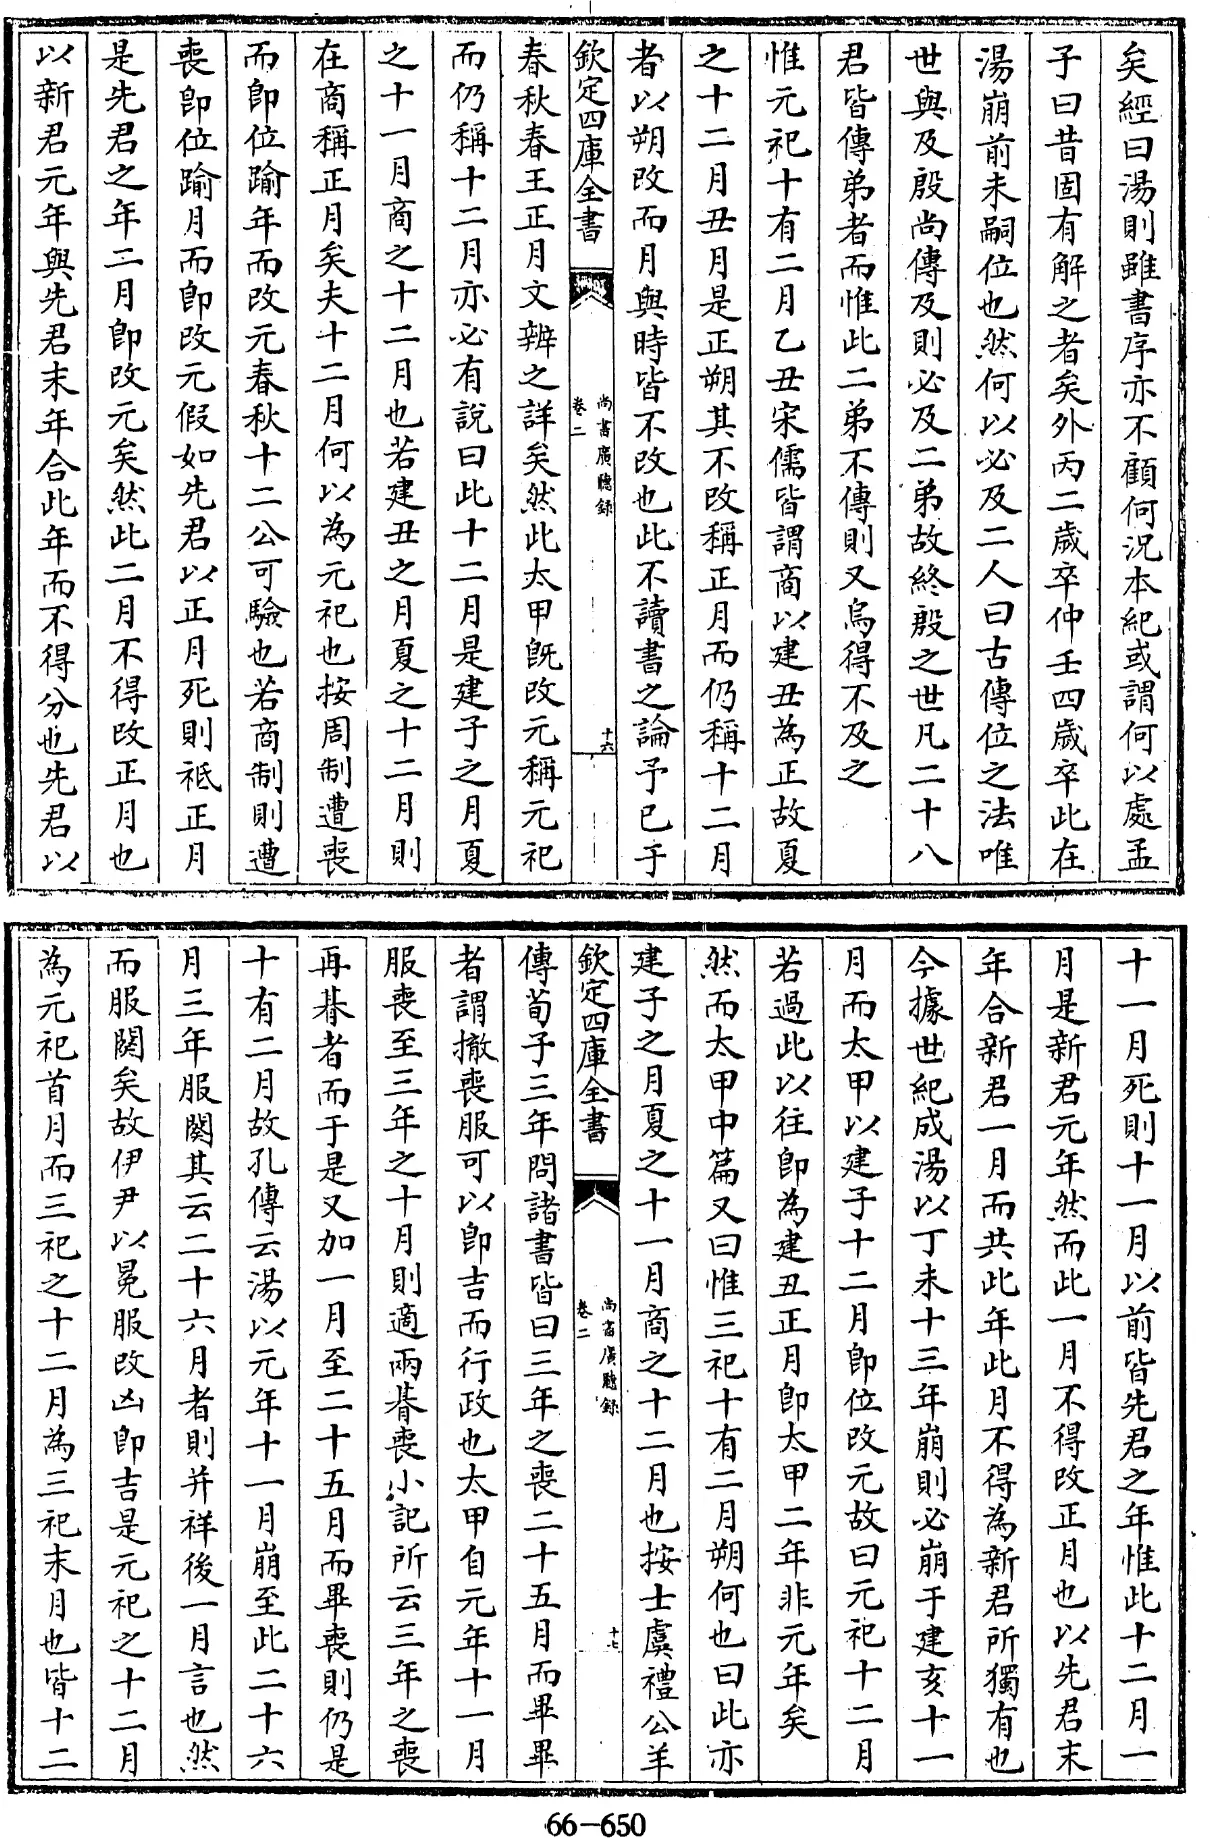 矣經曰湯則雖書序亦不顧何況本紀或謂何以處孟
子曰昔固有解之者矣外丙二歲卒仲壬四歲卒此在
湯崩前未嗣位也然何以必及二人曰古傳位之法唯
世與及殷尚傳及則必及二弟故終殷之世凡二十八
君皆傳弟者而惟此二弟不傳則又烏得不及之
惟元祀十有二月乙丑宋儒皆謂商以建丑為正故夏
之十二月丑月是正朔其不改稱正月而仍稱十二月
者以朔改而月與時皆不改也此不讀書之論予已于
欽定四庫全書
尚書廣聽録
卷二
十六
春秋春王正月文辨之詳矣然此太甲旣改元稱元祀
而仍稱十二月亦必有說曰此十二月是建子之月夏
之十一月商之十二月也若建丑之月夏之十二月則
在商稱正月矣夫十二月何以為元祀也按周制遭喪
而卽位踰年而改元春秋十二公可驗也若商制則遭
喪卽位踰月而卽改元假如先君以正月死則祗正月
是先君之年二月卽改元矣然此二月不得改正月也
以新君元年與先君末年合此年而不得分也先君以
十一月死則十一月以前皆先君之年惟此十二月一
月是新君元年然而此一月不得改正月也以先君末
年合新君一月而共此年此月不得為新君所獨有也
今據世紀成湯以丁未十三年崩則必崩于建亥十一
月而太甲以建子十二月卽位改元故曰元祀十二月
若過此以往卽為建丑正月卽太甲二年非元年矣
然而太甲中篇又曰惟三祀十有二月朔何也曰此亦
建子之月夏之十一月商之十二月也按士虞禮公羊
欽定四庫全書
尚書廣聽録
卷二
十七
傳荀子三年問諸書皆曰三年之喪二十五月而畢畢
者謂撤喪服可以卽吉而行政也太甲自元年十一月
服喪至三年之十月則適兩朞喪小記所云三年之喪
再朞者而于是又加一月至二十五月而畢喪則仍是
十有二月故孔傳云湯以元年十一月崩至此二十六
月三年服闋其云二十六月者則并祥後一月言也然
而服闋矣故伊尹以冕服改凶卽吉是元祀之十二月
為元祀首月而三祀之十二月為三祀末月也皆十二
66-650